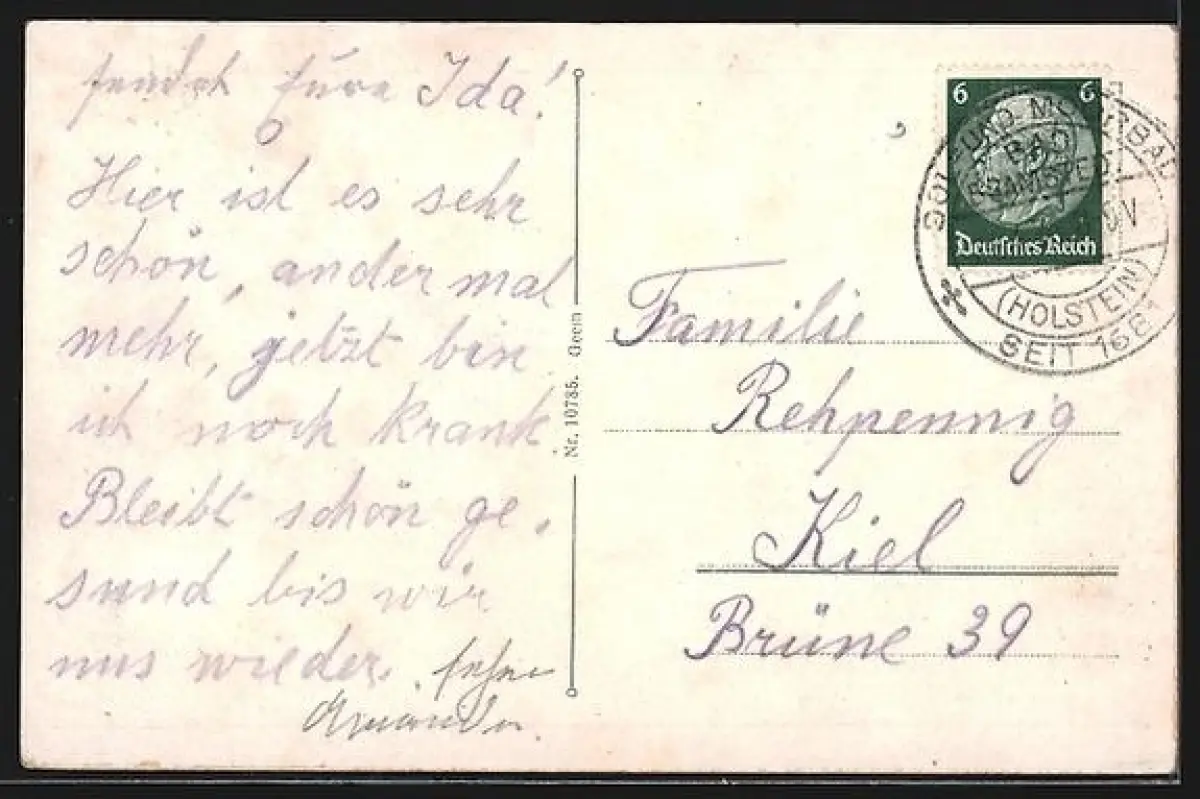 Ida!
Hier ist es sehr
schön, ander mal
mehr, jetzt bin
ich noch krank
Bleibt schön ge.
sund bis wir
uns wieder.
Nr. 10785. Geem
6 6
Deutsches Reich
UND MOORBAD
BAD
BRAMSTEDT
(HOLSTEIN)
SEIT 1681
Familie
Rehpennig
Kiel
Brüne 39